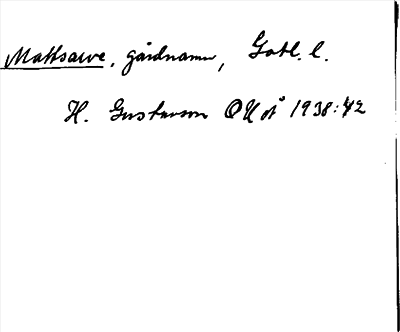 Mattsarve, gårdnamn, Gotl. l.
H. Gustavson OUÅ 1938:42